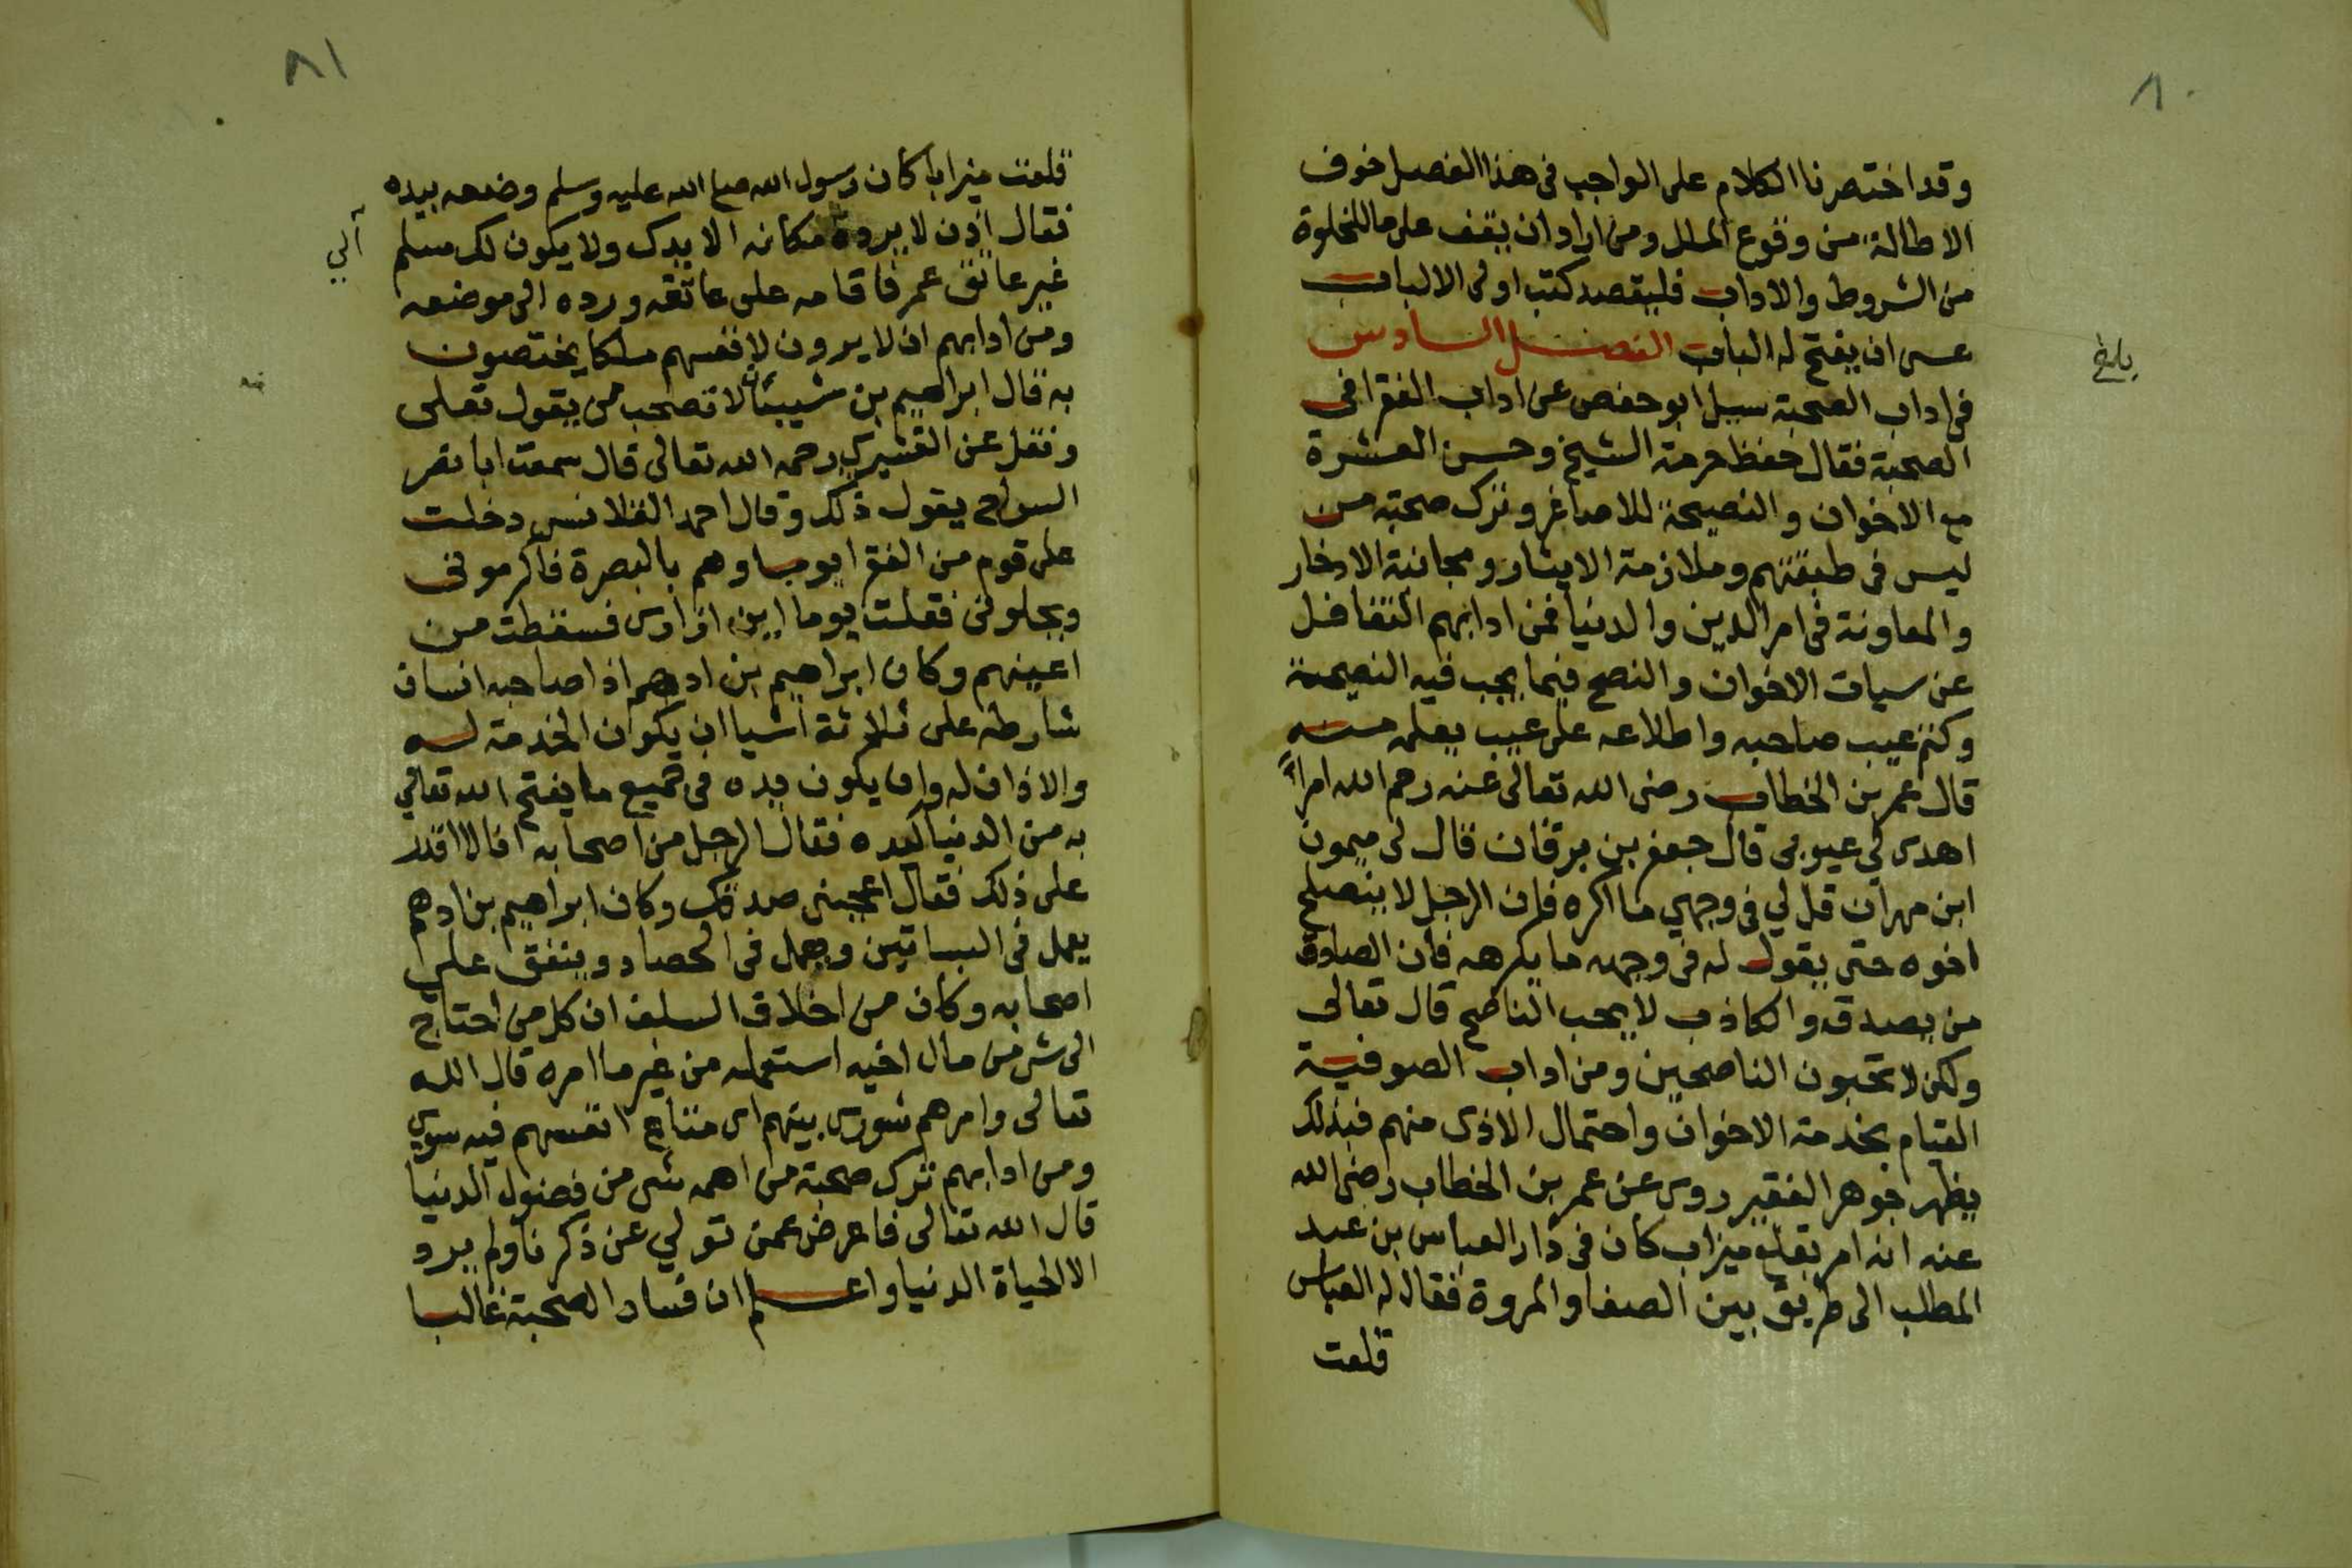 ٨٠
وقد اختصرنا الكلام على الواجب في هذا الفصل خوف
الاطالة من وقوع الملل ومن اراد ان يقف على ما للخلوة
من الشروط والاداب فليقصد كتب اولى الالباب
عسى ان يفتح له الباب الفصل السادس
في اداب الصحبة سيل ابو حفص عن اداب الفقرا في
الصحبة فقال حفظ حرمة الشيخ وحسن العشرة
مع الاخوان والنصيحة للاصاغر وترك صحبة من
ليس في طبقتهم وملازمة الايثار ومجانبة الادخار
والمعاونة في امر الدين والدنيا فمن ادابهم التغافل
عن سيات الاخوان والنصح فيما يجب فيه النصيحة
وكتم عيب صاحبه واطلاعه على عيب يعلمه منه
قال عمر بن الخطاب رضى الله تعالى عنه رحم الله امرأً
اهدى لي عيوبى قال جعفر بن برقان قال لى ميمون
ابن مهران قل لي في وجهي ما اكره فان الرجل لا ينصلح
اخوه حتى يقول له في وجهه ما يكرهه فان الصادق
من يصدق والكاذب لا يحب الناصح قال تعالى
ولكن لا تحبون الناصحين ومن اداب الصوفية
القيام بخدمة الاخوان واحتمال الاذى منهم فبذلك
يظهر جوهر الفقير روى عن عمر بن الخطاب رضى الله
عنه انه امر بقلع ميزاب كان في دار العباس بن عبد
المطلب الى طريق بين الصفا والمروة فقال له العباس
قلعت
٨١
قلعت ميزابا كان رسول الله صلى الله عليه وسلم وضعه بيده
فقال اذن لا يرده مكانه الا يدك ولا يكون لك سلم
غير عاتق عمر فاقامه على عاتقه ورده الى موضعه
ومن ادابهم ان لا يرون لانفسهم ملكا يختصون
به قال ابراهيم بن شيبان لا تصحب من يقول نعلى
ونقل عن القشيري رحمه الله تعالى قال سمعت ابا نصر
السراج يقول ذلك وقال احمد القلانسى دخلت
على قوم من الفقرا يوما وهم بالبصرة فاكرمونى
وبجلونى فقلت يوما اين ازارى فسقطت من
اعينهم وكان ابراهيم بن ادهم اذا صاحبه انسان
شارطه على ثلاثة اشيا ان يكون الخدمة له
والاذان له وان يكون يده في جميع ما يفتح الله تعالي
به من الدنيا كيده فقال الرجل من اصحابه انا لا اقدر
على ذلك فقال اعجبنى صدقك وكان ابراهيم بن ادهم
يعمل في البساتين ويعمل في الحصاد وينفق على
اصحابه وكان من اخلاق السلف ان كل من احتاج
الى شى من مال اخيه استعمله من غير ما امره قال الله
تعالى وامرهم شورى بينهم اى انفسهم فيه سوي
ومن ادابهم ترك صحبة من اهمه شى من فضول الدنيا
قال الله تعالى فاعرض عمن تولي عن ذكرنا ولم يرد
الا الحياة الدنيا واعلم ان فساد الصحبة غالبا